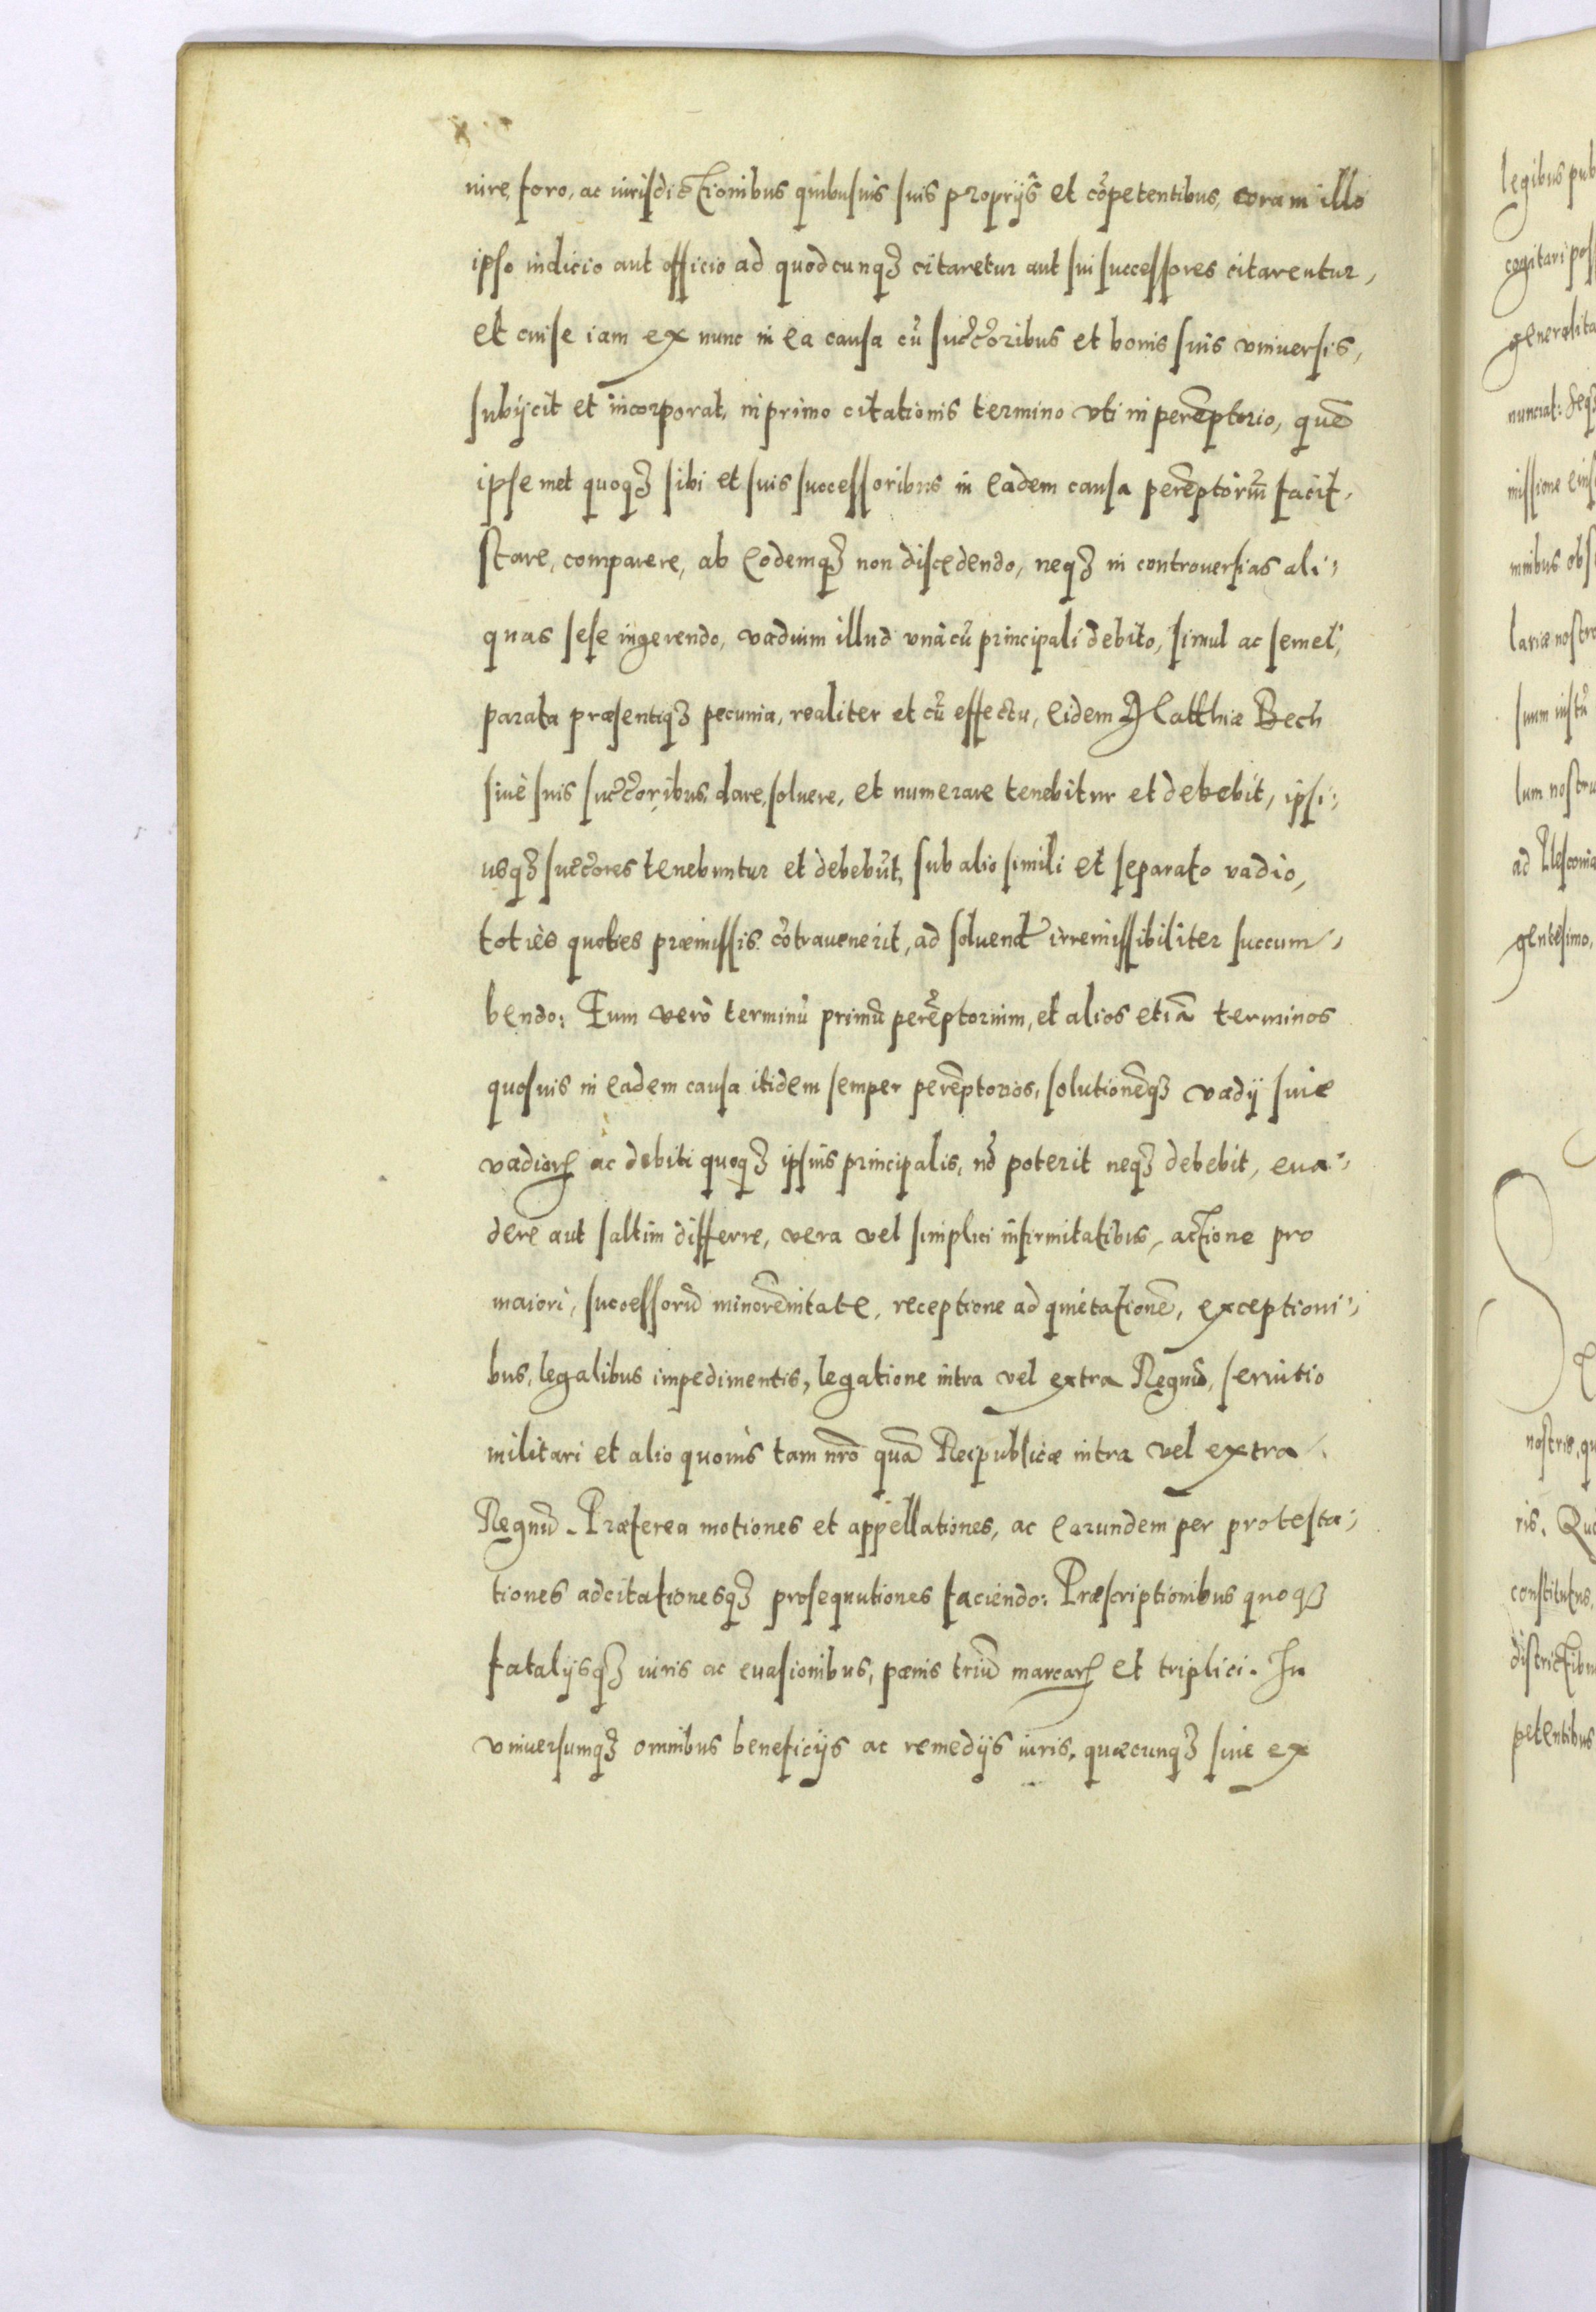 iure, foro, ac iurisdictionibus quibusuis suis proprijs et cōpetentibus, coram illo
ipso iudicio aut officio ad quodcunqȝ citaretur aut sui successores citarentur,
et cui se iam ex nunc in ea causa cū succ̄oribus et bonis suis vniuersis,
subijcit et incorporat, in primo citationis termino vti in perēptorio, quē
ipse met quoqȝ sibi et suis successoribus in eadem causa perēptoriū facit,
stare, comparere, ab eodemqȝ non discedendo, neqȝ in controuersias ali-
quas sese ingerendo, vadium illud vnà cū principali debito, simul ac semel,
parata præsentiqȝ pecunia, realiter et cū effectu, eidem Matthiæ Bech
siuè suis succ̄oribus, dare, soluere, et numerare tenebitur et debebit, ipsi-
usqȝ succ̄ores tenebuntur et debebūt, sub alio simili et separato vadio,
totiès quoties præmissis cōtrauenerit, ad soluend irremissibiliter succum-
bendo: Eum verò terminū primū perēptorium, et alios etiā terminos
quosuis in eadem causa itidem semper perēptorios, solutionēqȝ vadij siue
vadiorꝝ ac debiti quoqȝ ipsius principalis, nō poterit neqȝ debebit, eua-
dere aut saltim differre, vera vel simplici infirmitatibus, actione pro
maiori, successorū minorēnitate, receptione ad quietationē, exceptioni-
bus, legalibus impedimentis, legatione intra vel extra Regnū, seruitio
militari et alio quouis tam nrō quā Reipublicæ intra vel extra
Regnū. Præterea motiones et appellationes, ac earundem per protesta-
tiones adcitationesqȝ prosequutiones faciendo: Præscriptionibus quoqȝ
fatalijsqȝ iuris ac euasionibus, pœnis triū marcarꝝ et triplici. In
vniuersumqȝ omnibus beneficijs ac remedijs iuris, quæcunqȝ siue ex
legibus pub
cogitari pos
generalita
nunciat:
missione
minibus obs
lariæ nostræ
suum
lum nostru
ad
gentesimo,
nostris, qu
ris. Quo
constitutus,
districtibu
petentibus